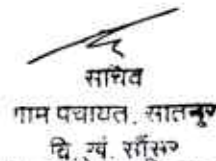 सचिव
ग्राम पंचायत, सातनूर
वि. खं. सौंसर